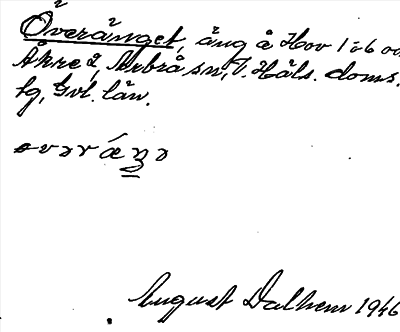 Överänget, äng å Hov 1 o 6 oc
Åkre 2, Arbrå sn, V. Häls. doms.
tg, Gvl. län.
August Dalhem 1946